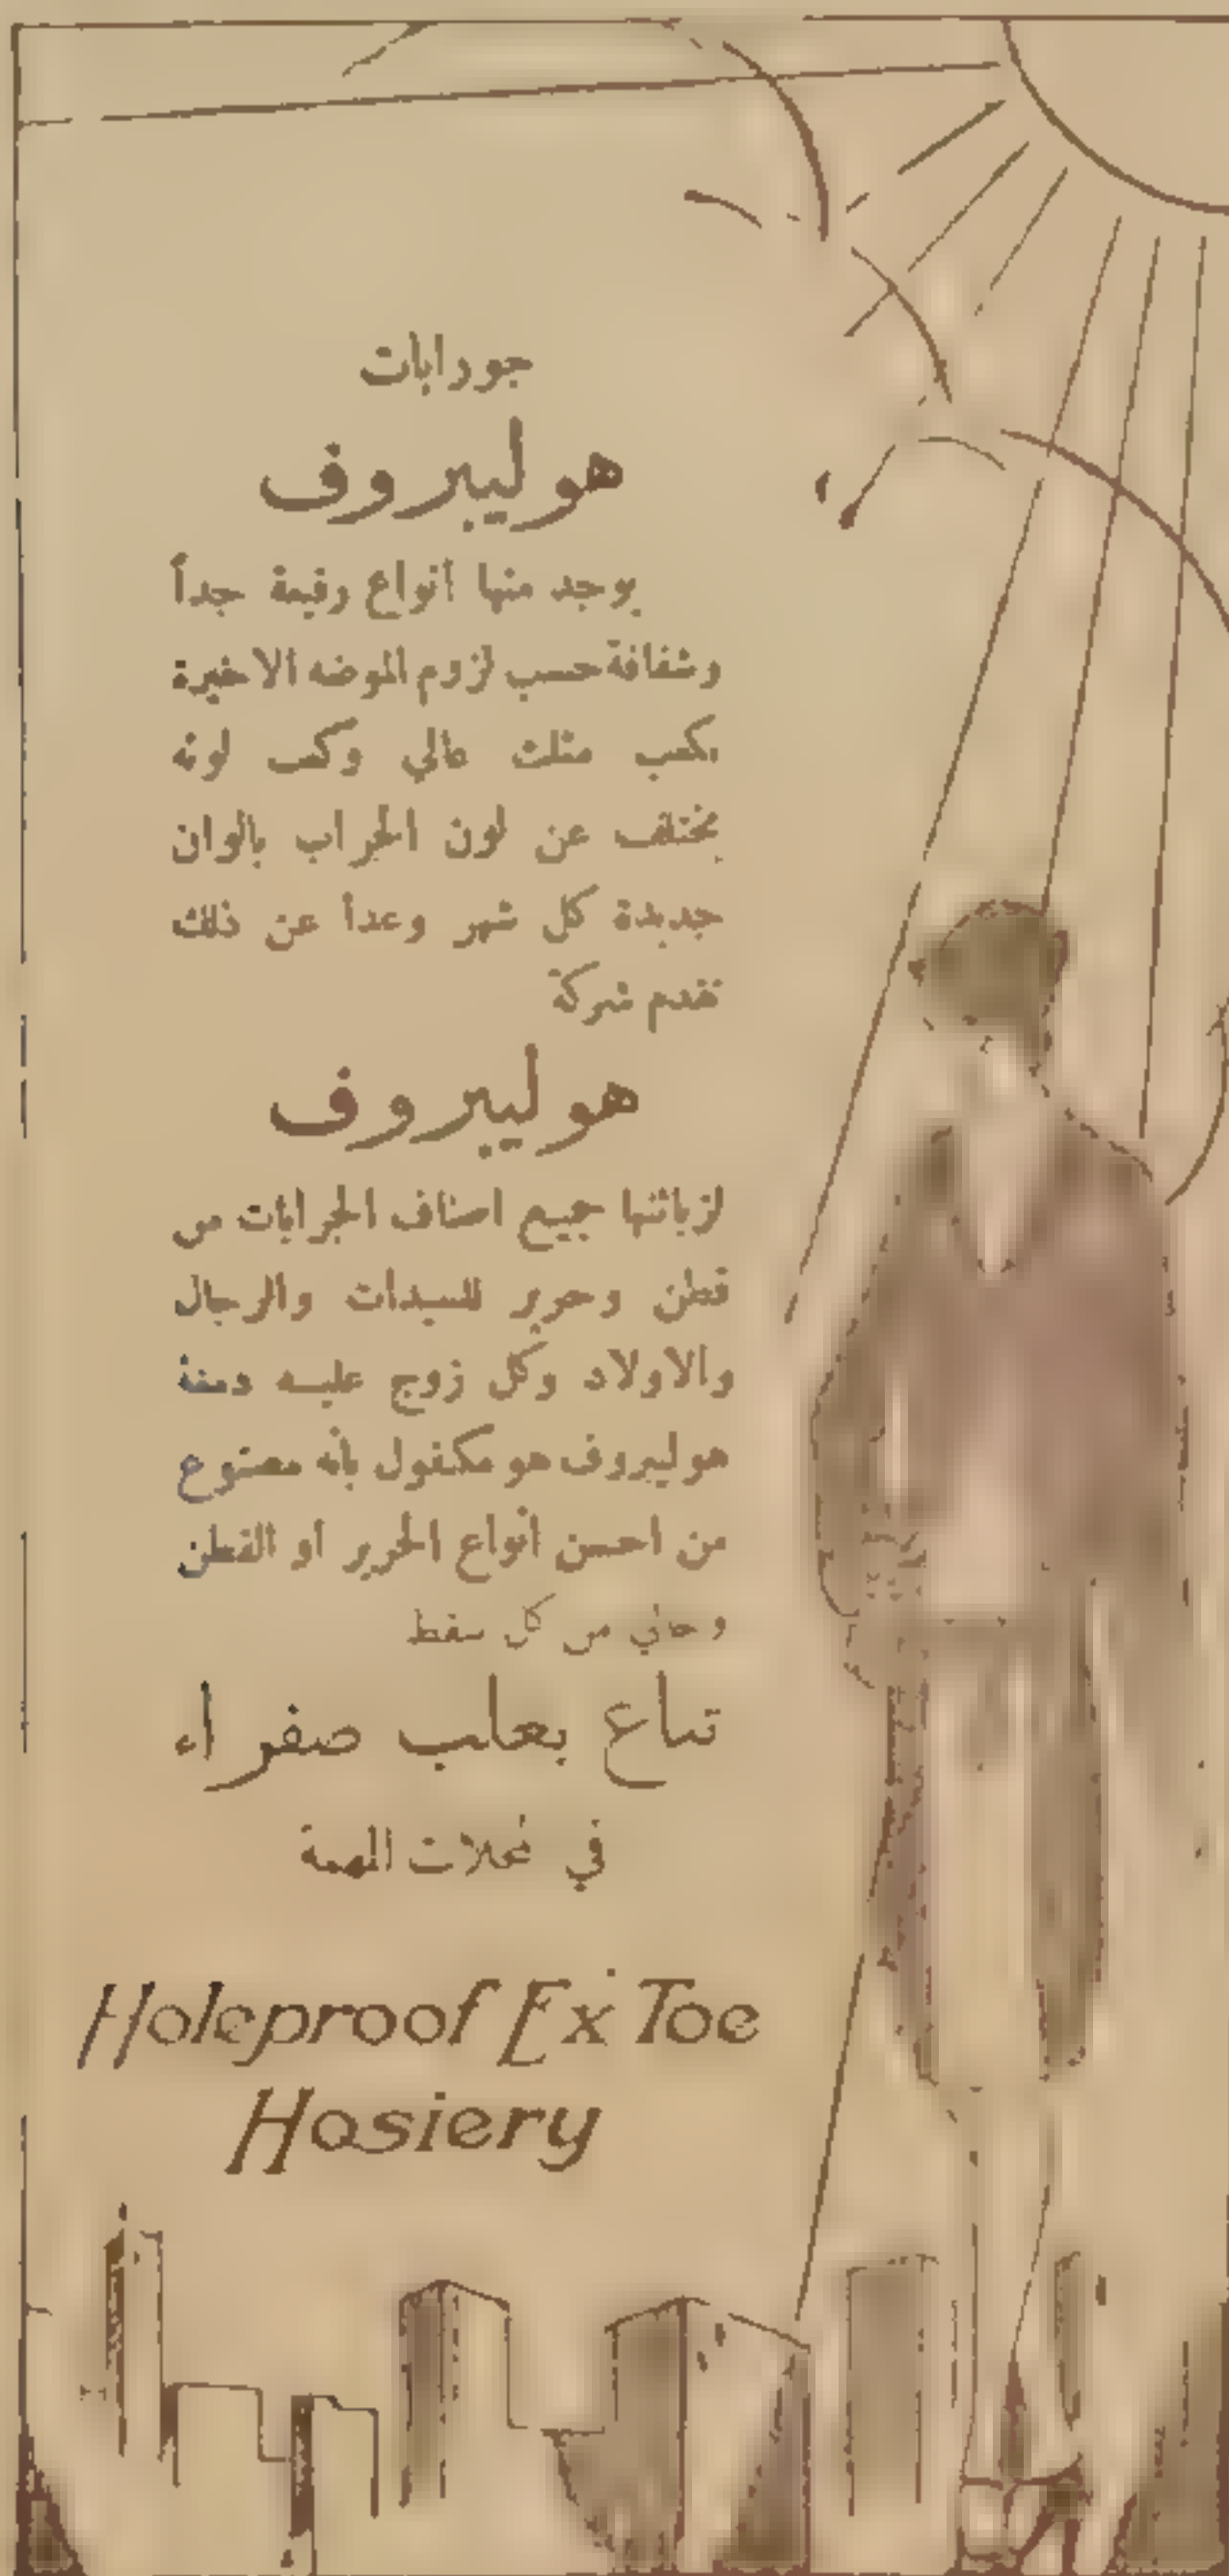 جورابات
هوليبروف
يوجد منها انواع رفيعة جداً
وشفافة حسب لزوم الموضه الاخيرة
بكعب مثلث عالي وكعب لونه
يختلف عن لون الجراب بالوان
جديدة كل شهر وعدا عن ذلك
تقدم شركة
هوليبروف
لزبائنها جميع اصناف الجرابات من
قطن وحرير للسيدات والرجال
والاولاد وكل زوج عليه دمغة
هوليبروف هو مكفول بانه مصنوع
من احسن انواع الحرير او القطن
وخالي من كل سقط
تباع بعلب صفراء
في محلات المهمة
Holeproof Ex Toe
Hosiery